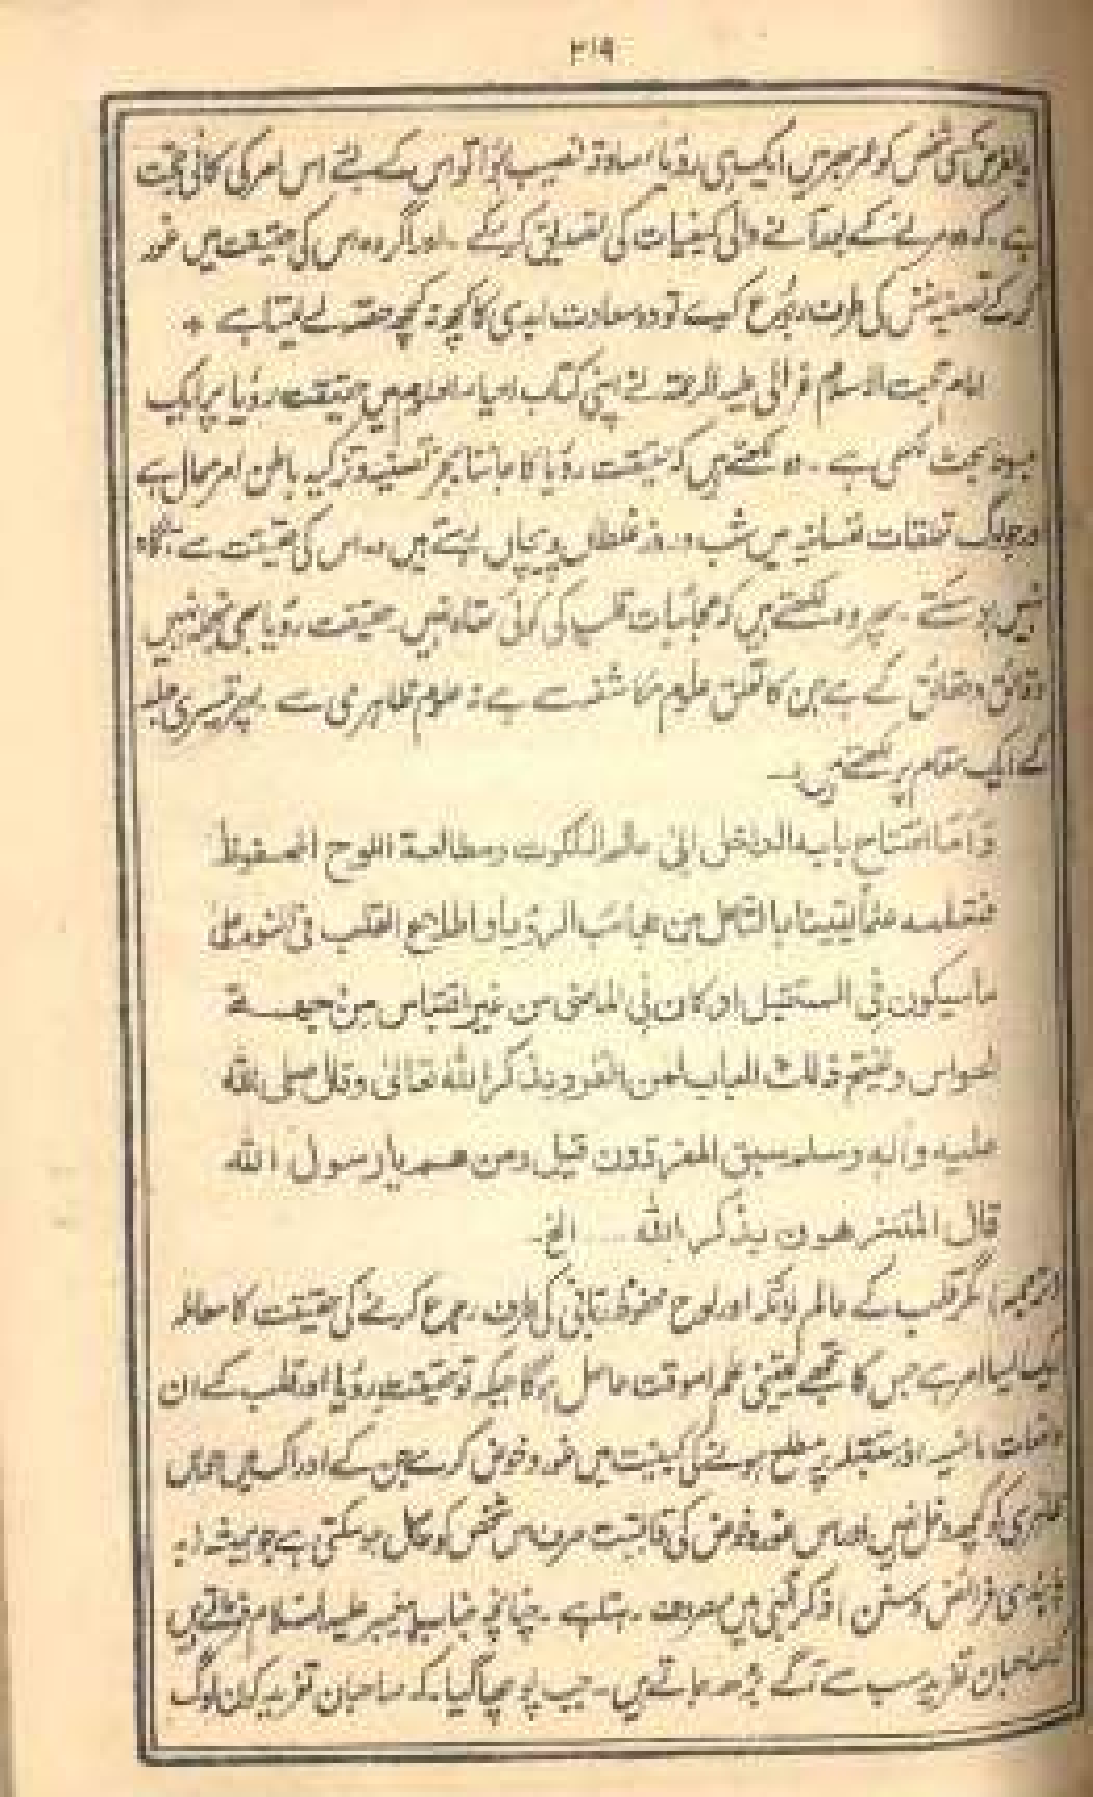 ۲۱۹
بالفرض کسی شخص کو عمر بھر میں ایک ہی رؤیاء صادقہ نصیب ہوا تو اس کے لئے اس امر کی کافی حجت
ہے۔ کہ وہ مرنے کے بعد آنے والی کیفیات کی تصدیق کر سکے ۔ اور اگر وہ اس کی حقیقت میں غور
کر کے تصفیہ نفس کی طرف رجوع کرے تو وہ سعادت ابدی کا کچھ نہ کچھ حصّہ لے لیتا ہے +
امام حجت الاسلام غزالی علیہ الرحمۃ نے اپنی کتاب احیاء العلوم میں حقیقت رؤیا پر ایک
بحث لکھی ہے ۔ وہ لکھتے ہیں کہ حقیقت رؤیا کا جاننا بجز تصفیہ و تزکیہ باطن امر محال ہے
اور جو لوگ تعلقات نفسانیہ میں شب و روز غلطاں و پیچاں رہتے ہیں وہ اس کی حقیقت سے آگاہ
نہیں ہو سکتے ۔ پھر وہ لکھتے ہیں کہ عجائبات قلب کی کوئی انتہا نہیں۔ حقیقت رؤیا بھی منجملہ انہیں
دقائق و حقائق کے ہے جن کا تعلق علوم مکاشفہ سے ہے نہ علوم ظاہری سے ۔ پھر تیسری جلد
کے ایک مقام پر لکھتے ہیں:۔
وَاَمَّا انفتاح باب الداخل الی عالم الملکوت ومطالعۃ اللوح المحفوظ
فتعلمہ علماً یقینا بالتأمل من عجائب الرؤیا و اطلاع القلب فی النوم علی
ما سیکون فی المستقبل او کان فی الماضی من غیر اقتباس من جہـۃ
الحواس و ینفتح ذلک الباب لمن انفرد بذکر اللہ تعالیٰ وقال صلی اللہ
علیہ وآلہ وسلم سبق المفردون قیل ومن ھم یا رسول اللہ
قال المتنزھون بذکر اللہ ..... الخ۔
(ترجمہ) مگر قلب کے عالم ملائکہ اور لوح محفوظ ربانی کی طرف رجوع کرنے کی حقیقت کا معاملہ
ایک ایسا امر ہے جس کا تجھے یقینی علم اسوقت حاصل ہوگا جبکہ تو حقیقت رؤیا اور قلب کے ان
واقعات ماضیہ اور مستقبلہ پر مطلع ہونے کی کیفیت میں غور و خوض کرے جن کے ادراک میں حواس
ظاہری کو کچھ دخل نہیں اور اس غور و خوض کی قابلیت صرف اس شخص کو حاصل ہو سکتی ہے جو ہمیشہ
پابندی فرائض و سنن اور ذکر الٰہی میں مصروف رہتا ہے ۔ چنانچہ جناب پیغمبر علیہ السلام فرماتے ہیں
کہ صاحبان تفرید سب سے آگے بڑھ جاتے ہیں۔ جب پوچھا گیا۔ کہ صاحبان تفرید کون لوگ